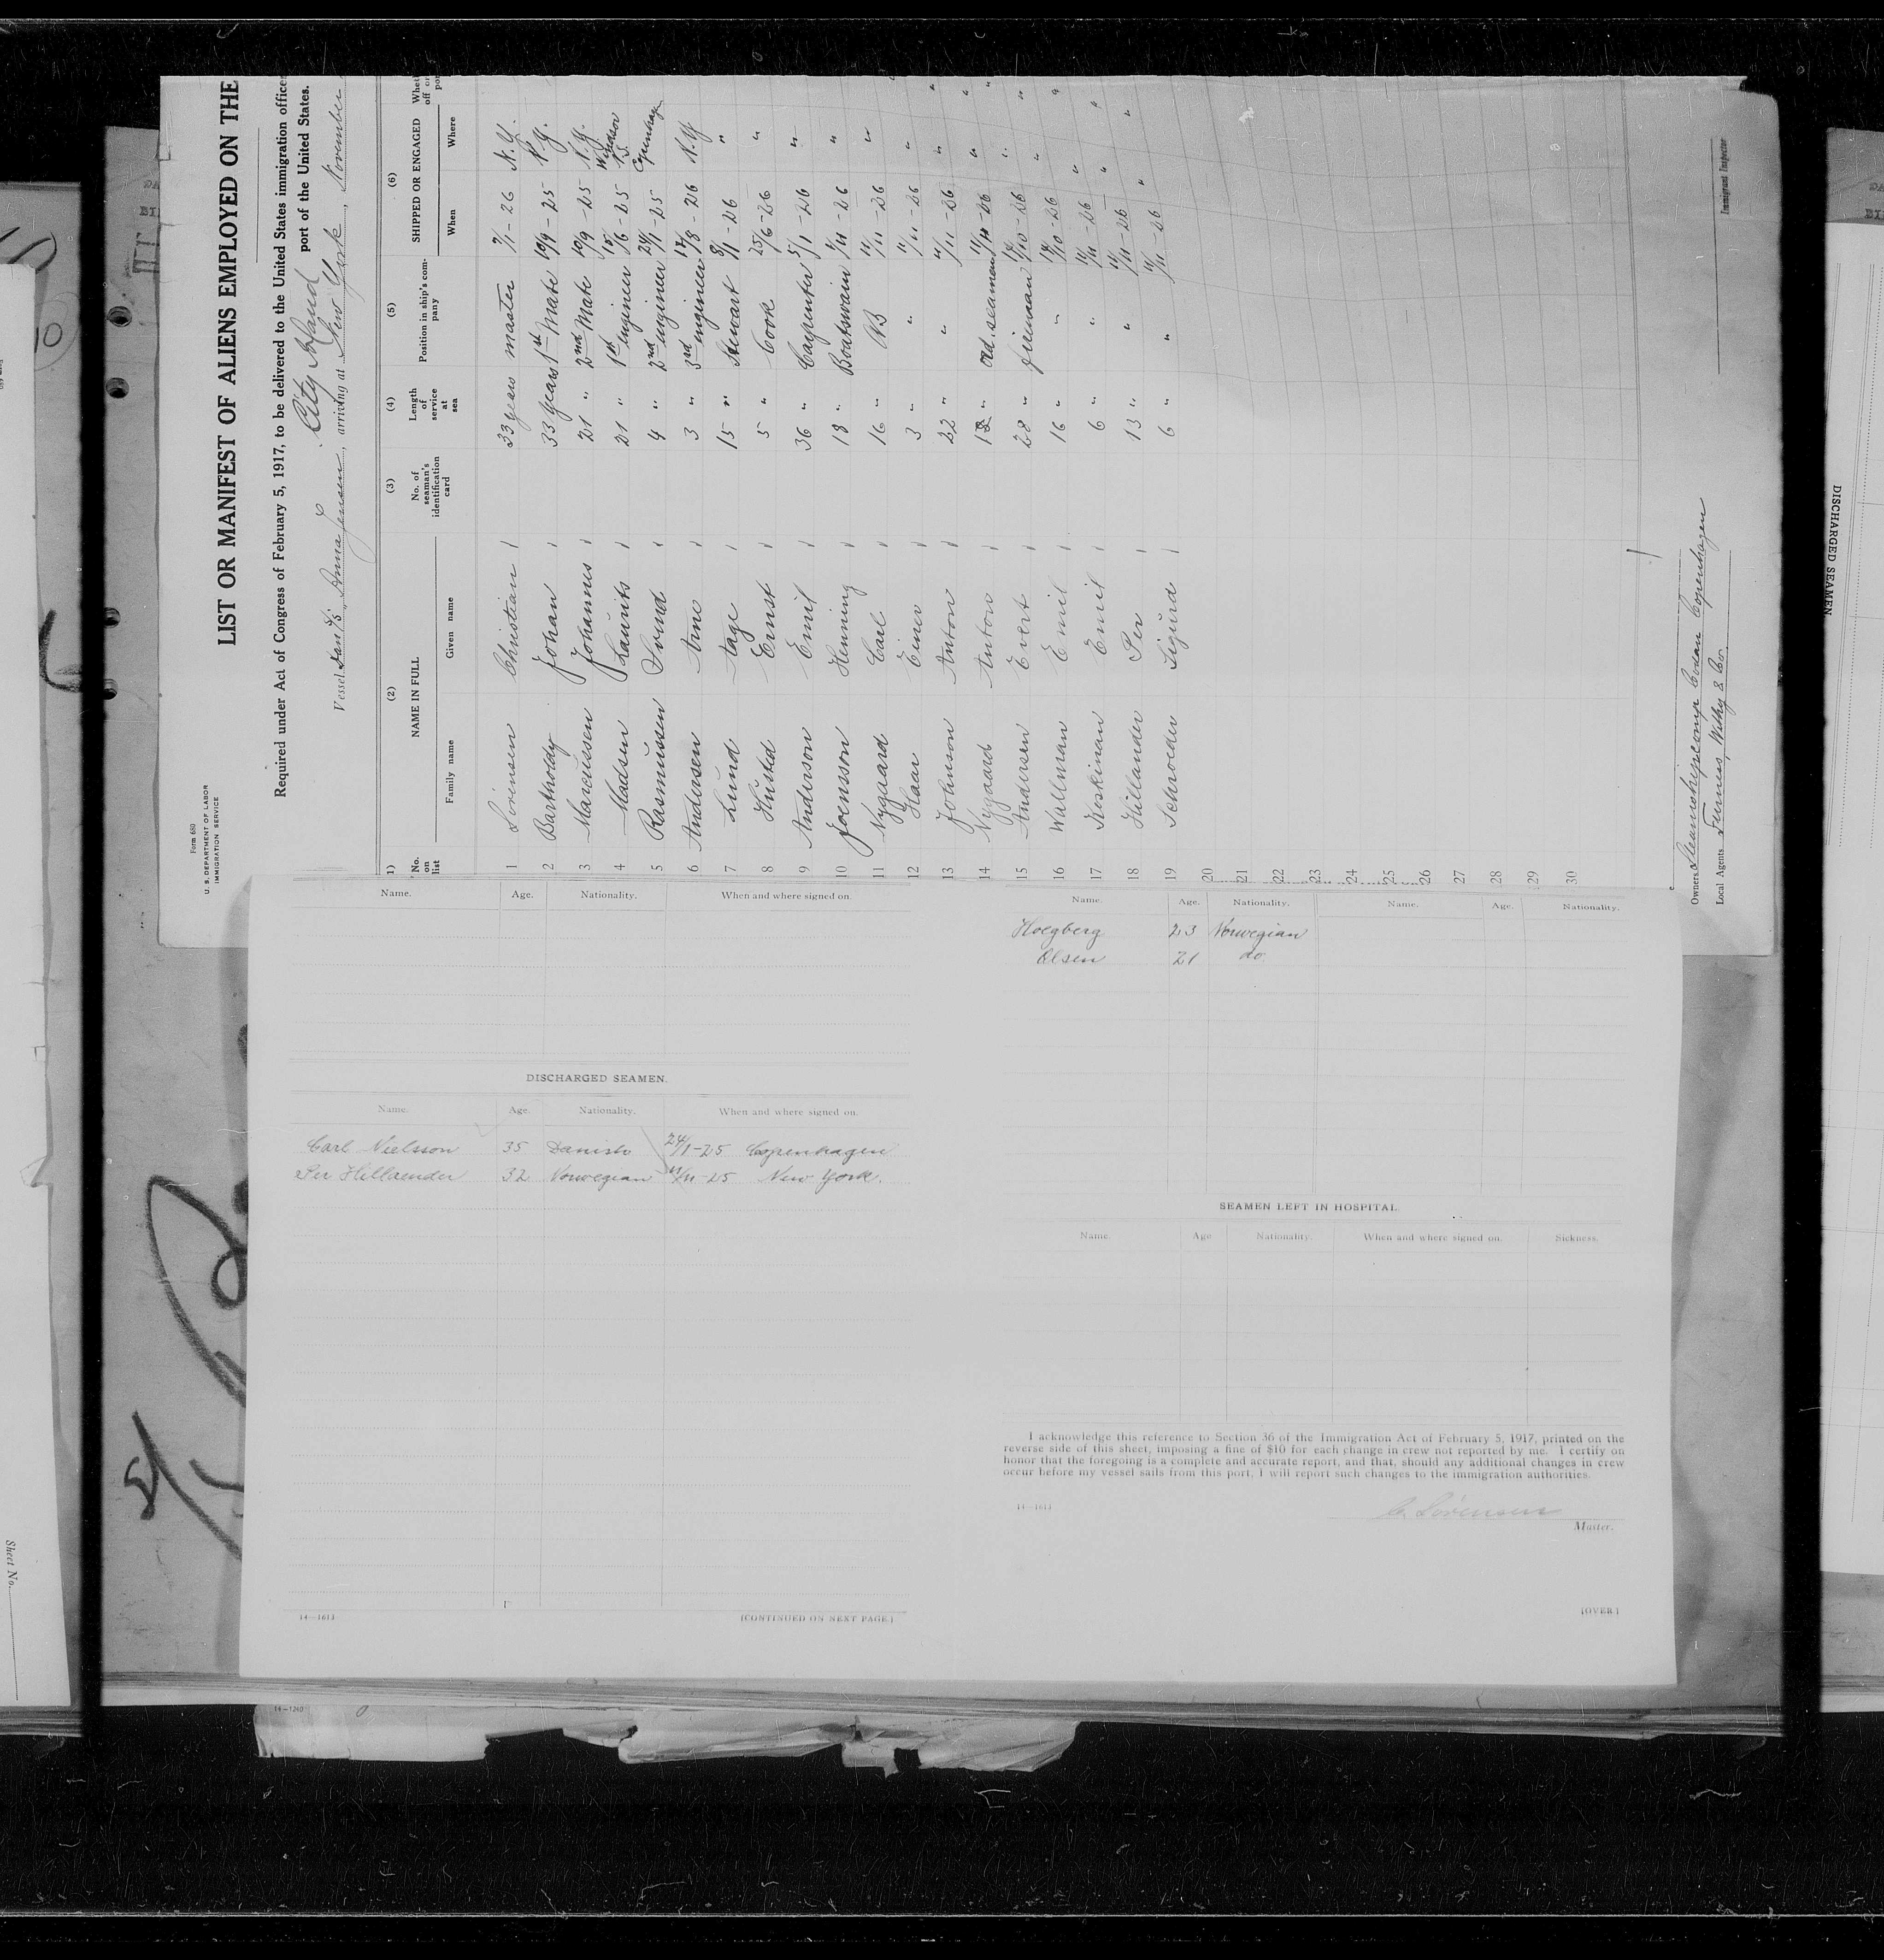 Form 680
U. S. DEPARTMENT OF LABOR
IMMIGRATION SERVICE
LIST OR MANIFEST OF ALIENS EMPLOYED ON THE
Required under Act of Congress of February 5, 1917, to be delivered to the United States immigration officer
port of the United States.
City Island
Vessel Dan. S/S Anna Jensen, arriving at New York, November
(1) (2) (3) (4) (5) (6)
No. on list NAME IN FULL No. of seaman's identification card Length of service at sea Position in ship's company SHIPPED OR ENGAGED
Family name Given name When Where
1 Sörensen Christian 33 years master 7/1-26 N.Y.
2 Bartholdy Johan 33 years 1st Mate 10/9-25 N.Y.
3 Marcussen Johannes 21 " 2nd Mate 10/9-25 N.Y.
4 Madsen Laurits 21 " 1st engineer 15/6-25 Windsor N.S.
5 Rasmussen Svend 4 " 2nd engineer 24/1-25 Copenhagen
6 Andersen Arne 3 " 3rd engineer 17/8-26 N.Y
7 Lund Aage 15 " Stewart 8/1-26 "
8 Husted Ernst 5 " Cook 25/6-26 "
9 Anderson Emil 36 " Carpenter 5/1-26 "
10 Joensson Henning 18 " Boatswain 4/11-26 "
11 Nygaard Carl 16 " AB 11/11-26 "
12 Haar Einer 3 " " 11/11-26 "
13 Johnson Anton 22 " " 11/11-26 "
14 Nygaard Anton 12 " ord. seaman 11/11-26 "
15 Andersen Evert 28 " fireman 18/10-26 "
16 Wallman Emil 16 " " 18/10-26 "
17 Koskinan Emil 6 " " 11/11-26 "
18 Hillander Per 13 " " 11/11-26 "
19 Schroeder Sigurd 6 " " 11/11-26 "
20
21
22
23
24
25
26
27
28
29
30
Owners Steamshipscomp Codan Copenhagen
Local Agents Furness, Withy & Co.
Immigrant Inspector
Name. Age. Nationality. When and where signed on.
DISCHARGED SEAMEN.
Name. Age. Nationality. When and where signed on.
Carl Nielsson 35 Danish 24/1-25 Copenhagen
Per Hillaender 32 Norwegian 11/11-25 New York.
14—1613
[CONTINUED ON NEXT PAGE.]
Name. Age. Nationality. Name. Age. Nationality.
Hoegberg 23 Norwegian
Olsen 21 do.
SEAMEN LEFT IN HOSPITAL
Name. Age Nationality. When and where signed on. Sickness.
I acknowledge this reference to Section 36 of the Immigration Act of February 5, 1917, printed on the
reverse side of this sheet, imposing a fine of $10 for each change in crew not reported by me. I certify on
honor that the foregoing is a complete and accurate report, and that, should any additional changes in crew
occur before my vessel sails from this port, I will report such changes to the immigration authorities.
14—1613
C. Sörensen
Master.
[OVER]
14—1240
Sheet No.
DISCHARGED SEAMEN